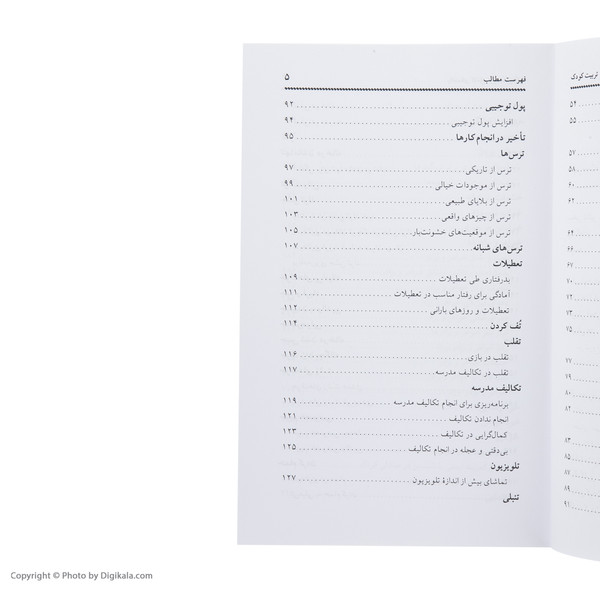 فهرست مطالب ۵
پول توجیبی ۹۲
افزایش پول توجیبی ۹۴
تأخیر در انجام کارها ۹۵
ترس‌ها
ترس از تاریکی ۹۷
ترس از موجودات خیالی ۹۹
ترس از بلایای طبیعی ۱۰۱
ترس از چیزهای واقعی ۱۰۳
ترس از موقعیت‌های خشونت‌بار ۱۰۵
ترس‌های شبانه ۱۰۷
تعطیلات
بدرفتاری طی تعطیلات ۱۰۹
آمادگی برای رفتار مناسب در تعطیلات ۱۱۱
تعطیلات و روزهای بارانی ۱۱۲
تُف کردن ۱۱۴
تقلب
تقلب در بازی ۱۱۶
تقلب در تکالیف مدرسه ۱۱۷
تکالیف مدرسه
برنامه‌ریزی برای انجام تکالیف مدرسه ۱۱۹
انجام ندادن تکالیف ۱۲۱
کمال‌گرایی در تکالیف ۱۲۳
بی‌دقتی و عجله در انجام تکالیف ۱۲۵
تلویزیون
تماشای بیش از اندازهٔ تلویزیون ۱۲۷
تنبلی
تربیت کودک
۵۴
۵۵
۵۷
۵۸
۶۰
۶۲
۶۴
۶۶
۶۷
۷۰
۷۲
۷۳
۷۵
۷۷
۷۹
۸۰
۸۲
۸۳
۸۵
۸۷
۸۹
۹۱
Copyright © Photo by Digikala.com